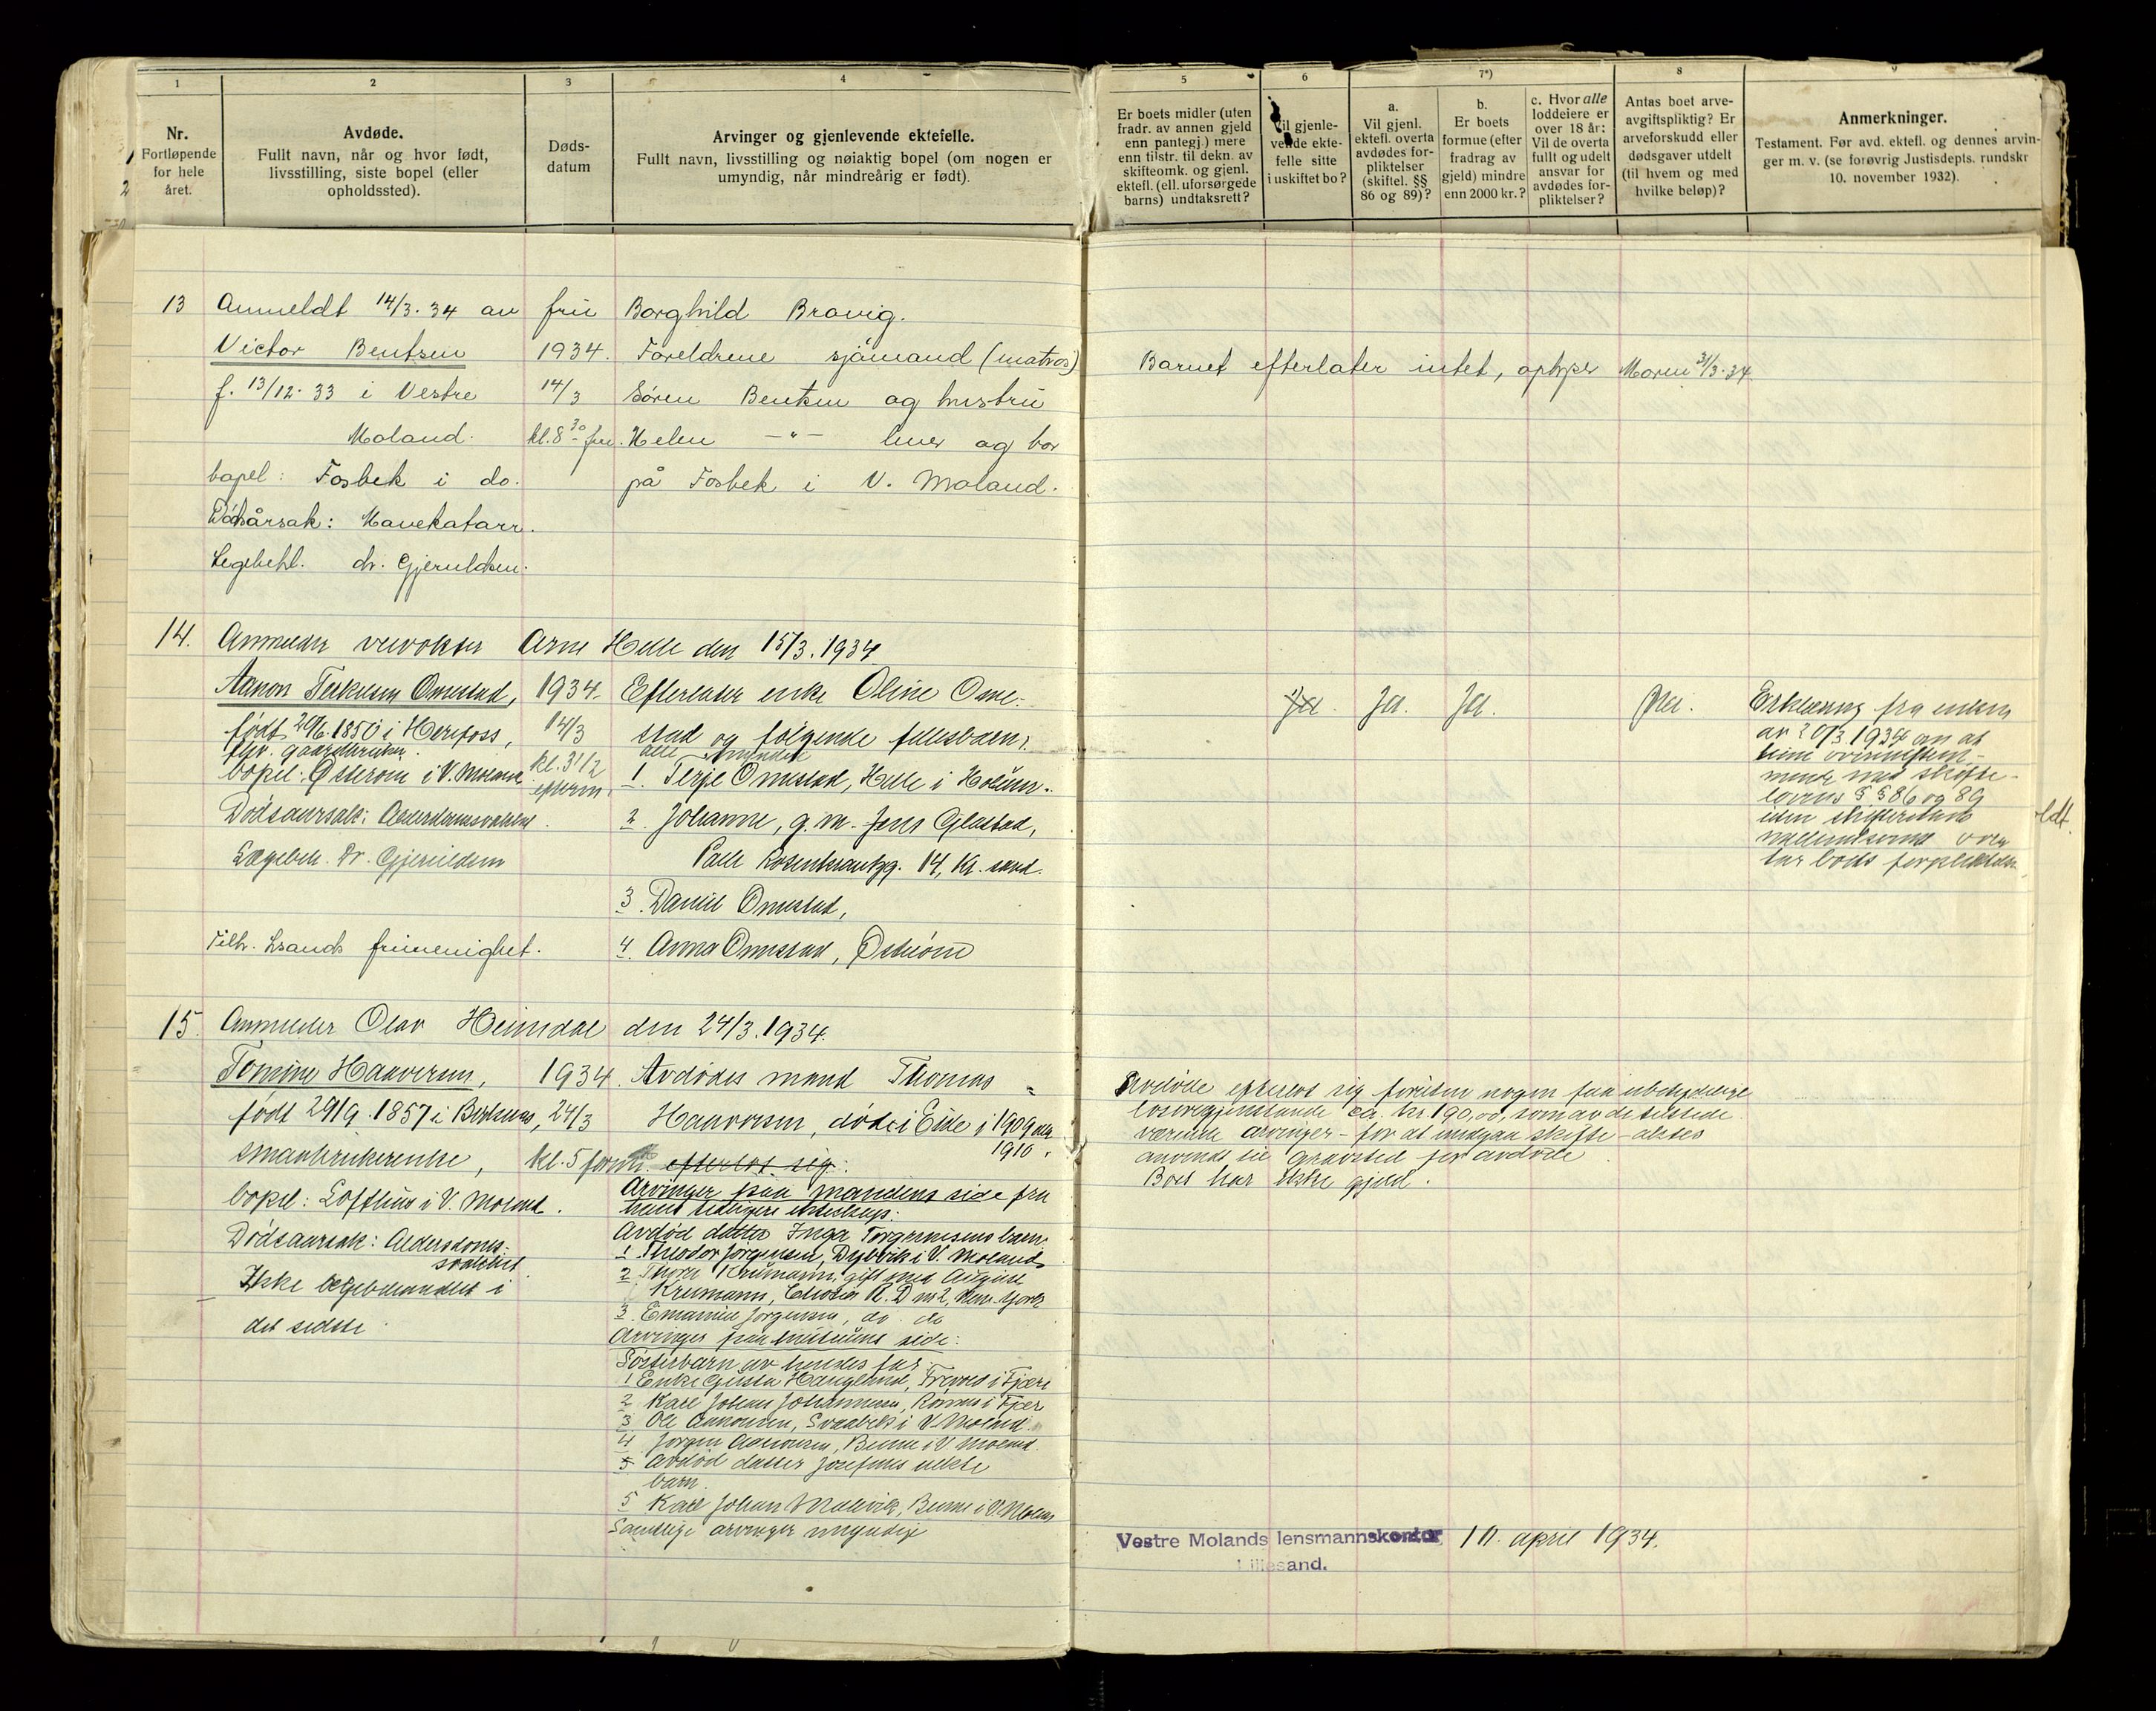 1
Nr.
Fortløpende
for hele
året.
2
Avdøde.
Fullt navn, når og hvor født,
livsstilling, siste bopel (eller
opholdssted).
3
Døds-
datum
4
Arvinger og gjenlevende ektefelle.
Fullt navn, livsstilling og nøiaktig bopel (om nogen er
umyndig, når mindreårig er født).
5
Er boets midler (uten
fradr. av annen gjeld
enn pantegj.) mere
enn tilstr. til dekn. av
skifteomk. og gjenl.
ektefl. (ell. uforsørgede
barns) undtaksrett?
6
Vil gjenle-
vende ekte-
felle sitte
i uskiftet bo?
7*)
a.
Vil gjenl.
ektefl. overta
avdødes for-
pliktelser
(skiftel. §§
86 og 89)?
b.
Er boets
formue (efter
fradrag av
gjeld) mindre
enn 2000 kr.?
c. Hvor alle
loddeiere er
over 18 år:
Vil de overta
fullt og udelt
ansvar for
avdødes for-
pliktelser?
8
Antas boet arve-
avgiftspliktig? Er
arveforskudd eller
dødsgaver utdelt
(til hvem og med
hvilke beløp)?
9
Anmerkninger.
Testament. Før avd. ektefl. og dennes arvin-
ger m. v. (se forøvrig Justisdepts. rundskr
10. november 1932).
13 Anmeldt 14/3. 34 av fru Borghild Brovig.
Victor Bentsen 1934. Foreldrene sjømand (matros)
f. 13/12. 33 i Vestre 14/3 Søren Bentsen og hustru
Moland. kl. 8 30 fm. Helen -"- lever og bor
bopel: Fosbek i do. på Fosbek i V. Moland.
Dødsårsak: Mavekatarr.
Legebehl. dr. Gjeruldsen.
Barnet efterlater intet, opgir Moren 31/3-34
14. Anmelder veivokter Arne Helle den 15/3. 1934
Aanon Terkelsen Omestad, 1934. Efterlater enke Oline Ome-
født 29/6 1850 i Herefoss, 14/3 stad og følgende fellesbarn:
fhv. gaardbruker. alle myndige
bopel: Østerom i V. Moland kl. 3 1/2 1. Terje Omestad, Helle i Holum.
efterm.
Dødsaarsak: Alderdomssvakhet. 2. Johanne, g.m. Jens Glastad,
Lægebeh. Dr. Gjeruldsen Palle Rosenkrantzg. 14, Kr. sand.
3. Daniel Omestad,
Tilh. Lsands frimenighet. 4. Anna Omestad, Østerom
Ja. Ja. Ja. Nei. Erklæring fra enken
av 20/3 1934 om at
hun i overensstem-
mende med skifte-
lovens §§ 86 og 89
uten skifterettens
mellemkomst over
tar boets forpliktelser
15. Anmelder Olav Heimdal den 24/3. 1934.
Tomine Haaversen, 1934. Avdødes mand Thomas
født 29/9. 1857 i Birkenes, 24/3 Haaversen, døde i Eide i 1909 eller
1910.
smaabrukerenke, kl. 5 form. efterlot sig:
bopel: Lofthus i V. Moland. Arvinger paa mandens side fra
hans tidligere ekteskap:
Dødsaarsak: Alderdoms-
svakhet
Ikke legebehandlet i
det sidste
Avdød datter Inga Jørgensens barn:
1 Theodor Jørgensen, Dybvik i V. Moland
2 Thora Krumann, gift med August
Krumann, R. D no 2, New York
3 Emanuel Jørgensen, do. do
Arvinger paa hustruens side:
Søsterbarn av hendes far
1 Enke Gusta Haugland, i Fjære
2 Karl Johan Johannesen, i Fjære
3 Ole Aanonsen, Svaabek i V. Moland
4 Jørgen Aanonsen, i V Moland.
5 Avdød datter Josefines ekte
barn.
5 Karl Johan Malvik, i V. Moland
Samtlige arvinger myndige
Avdøde efterlot sig foruten nogen faa ubetydelige
løsøregjenstande ca. kr. 190,00, som av de tilstede-
værende arvinger - for at undgaa skifte - aktes
anvendt til gravsted for avdøde.
Boet har ikke gjeld.
Vestre Molands lensmannskontor 10. april 1934.
Lillesand.